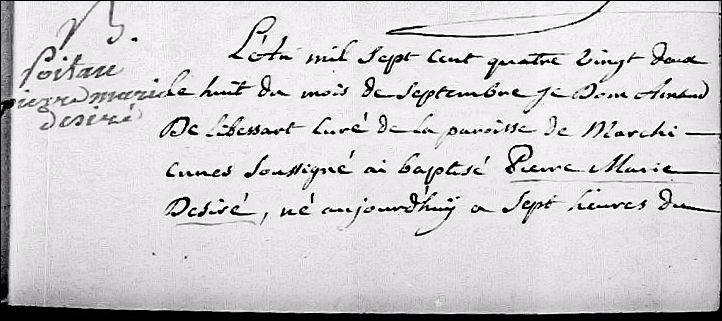 B.
Poitau
pierre marie
desiré
L'an mil sept cent quatre vingt deux
le huit du mois de septembre je Dom Amand
De lebessart curé de la paroisse de Marchi-
ennes soussigné ai baptisé Pierre Marie
Desiré, né aujourd'huÿ a sept heures du